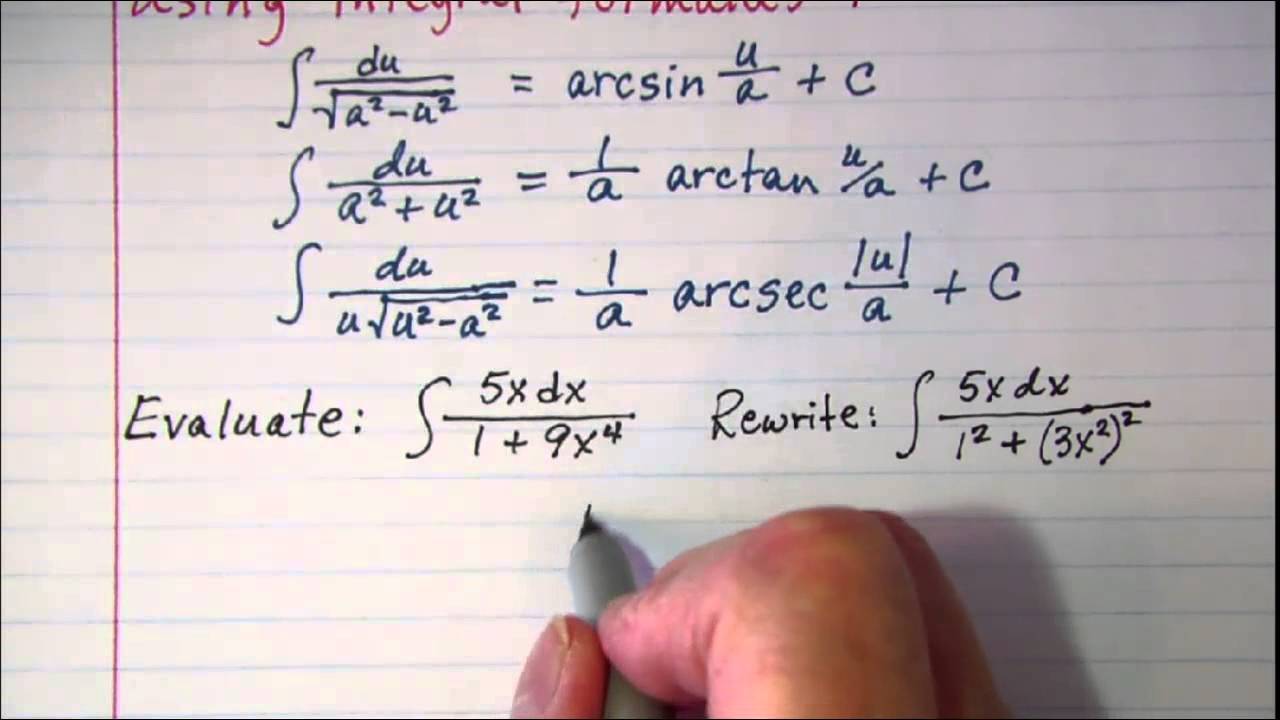 using integral formulas
∫ du/√(a²-u²) = arcsin u/a + C
∫ du/(a²+u²) = 1/a arctan u/a + C
∫ du/(u√(u²-a²)) = 1/a arcsec |u|/a + C
Evaluate: ∫ 5x dx/(1 + 9x⁴) Rewrite: ∫ 5x dx/(1² + (3x²)²)